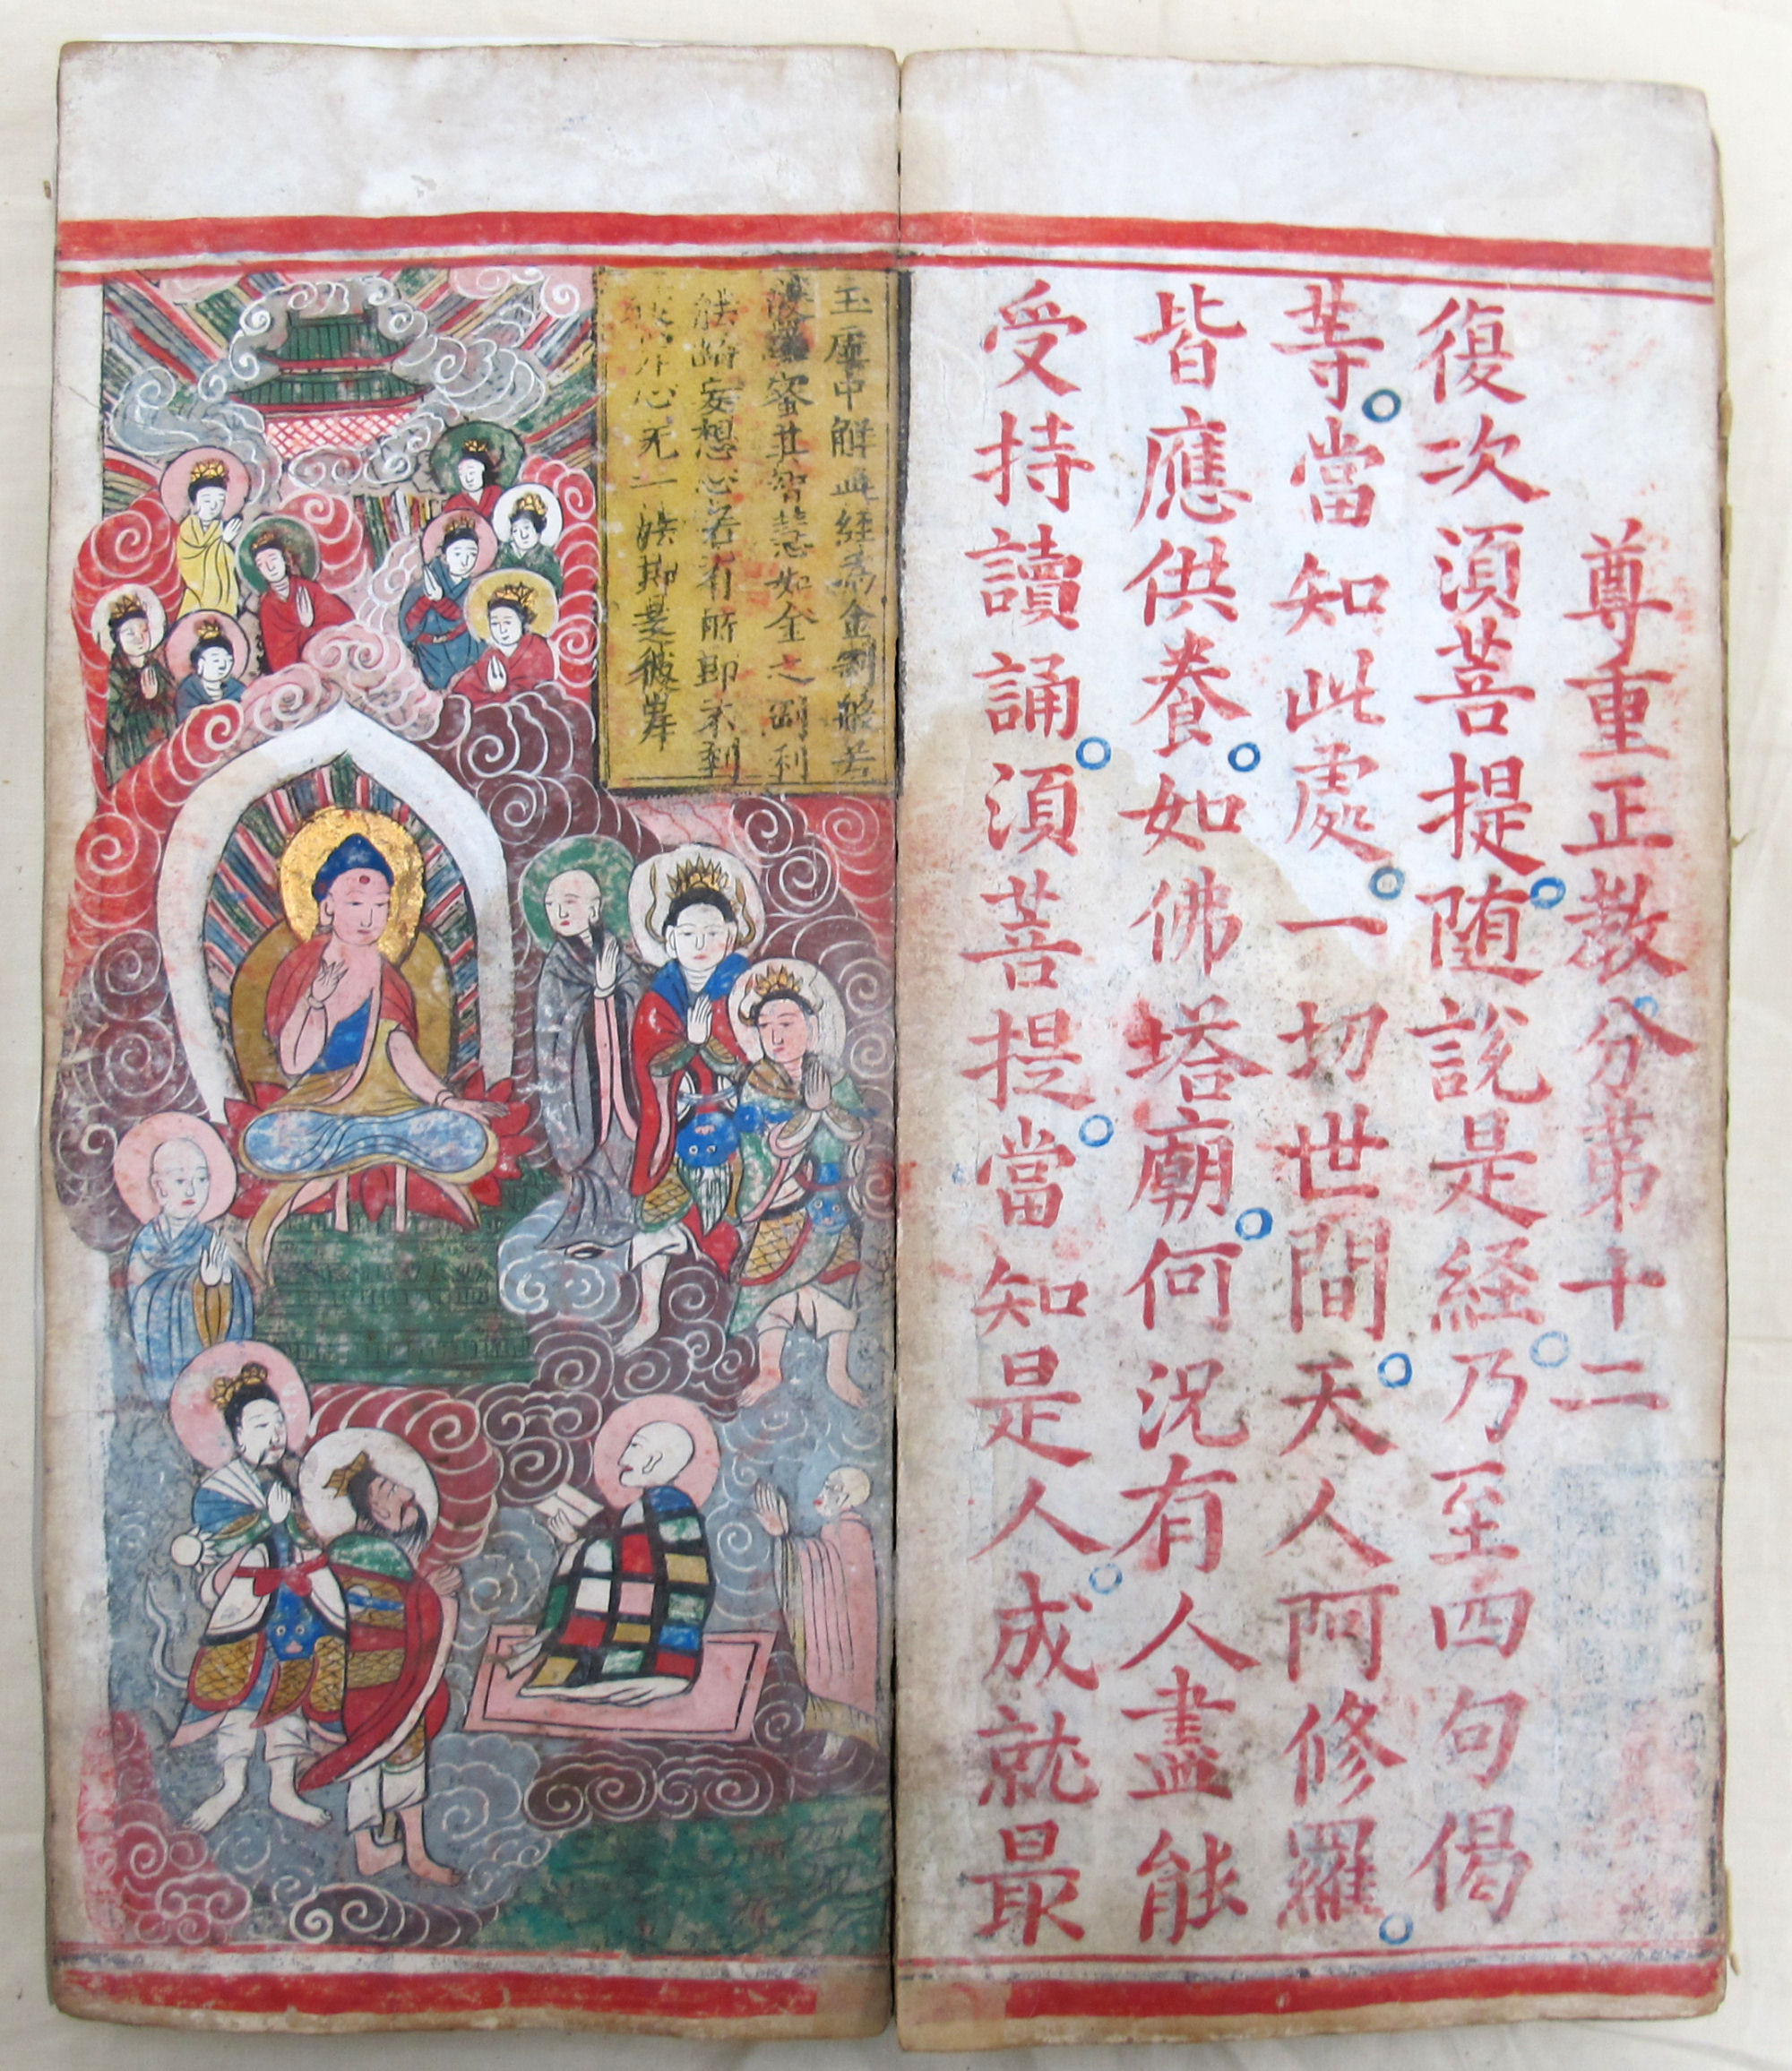 尊重正教分第十二
復次湏菩提。随說是経。乃至四句偈
等。當知此處。一切世間。天人阿修羅。
皆應供養。如佛塔廟。何況有人盡能
受持讀誦。湏菩提。當知是人。成就最
玉庫中解此経為金剛般若
波羅蜜其智慧如金之剛利
能妄想心若有所即不到
彼岸心无一法即是彼岸